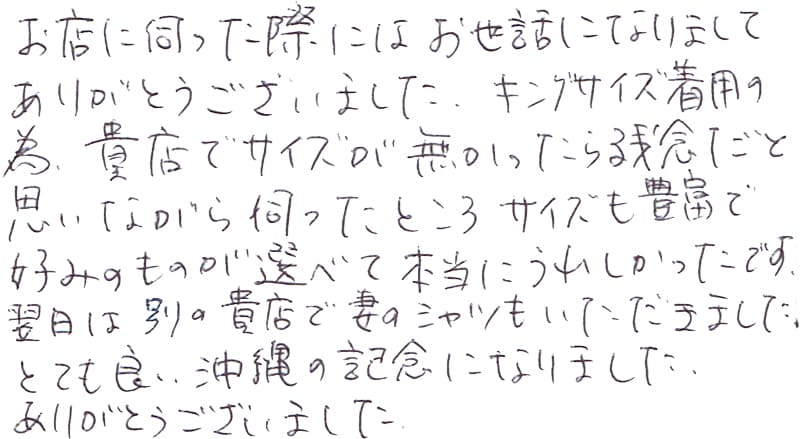 お店に伺った際にはお世話になりまして
ありがとうございました。キングサイズ着用の
為、貴店でサイズが無かったら残念だと
思いながら伺ったところサイズも豊富で
好みのものが選べて本当にうれしかったです。
翌日は別の貴店で妻のシャツもいただきました。
とても良い、沖縄の記念になりました。
ありがとうございました。